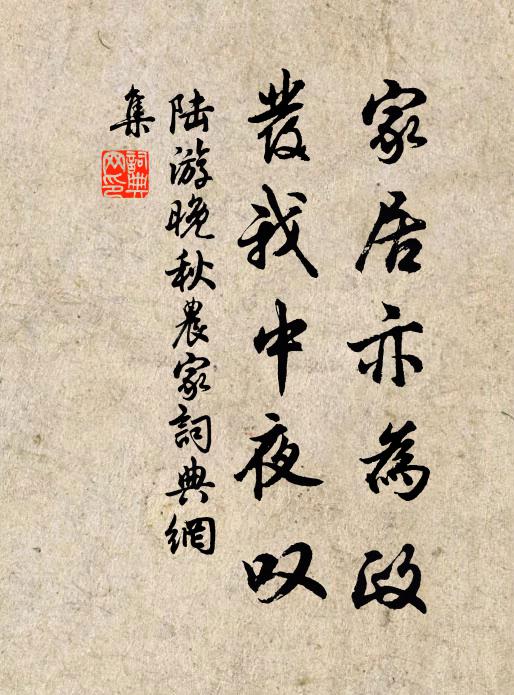 家居亦為政
發我中夜叹
陆游晚秋農家詞典網
集
詞典网印